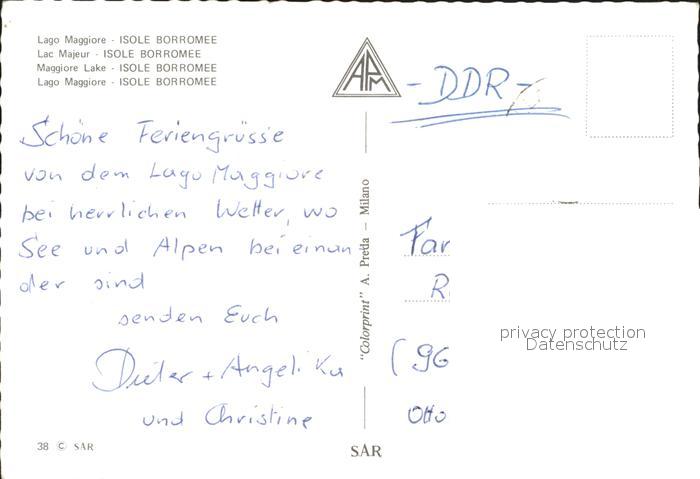 Lago Maggiore - ISOLE BORROMEE
Lac Majeur - ISOLE BORROMEE
Maggiore Lake - ISOLE BORROMEE
Lago Maggiore - ISOLE BORROMEE
APM
- DDR -
Schöne Feriengrüsse
von dem Lago Maggiore
bei herrlichen Wetter, wo
See und Alpen bei einan
der sind
senden Euch
Dieter + Angelika
und Christine
"Colorprint" A. Preda - Milano
Far
R
(96
Otto
privacy protection
Datenschutz
38 © SAR
SAR